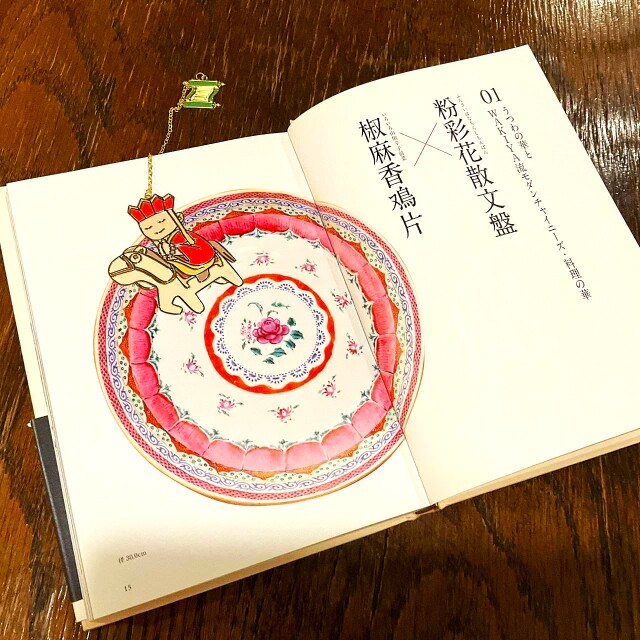 01
うつわの華と
WAKIYA流モダンチャイニーズ・料理の華
粉彩花散文盤
×
椒麻香片
径 30.0cm
15